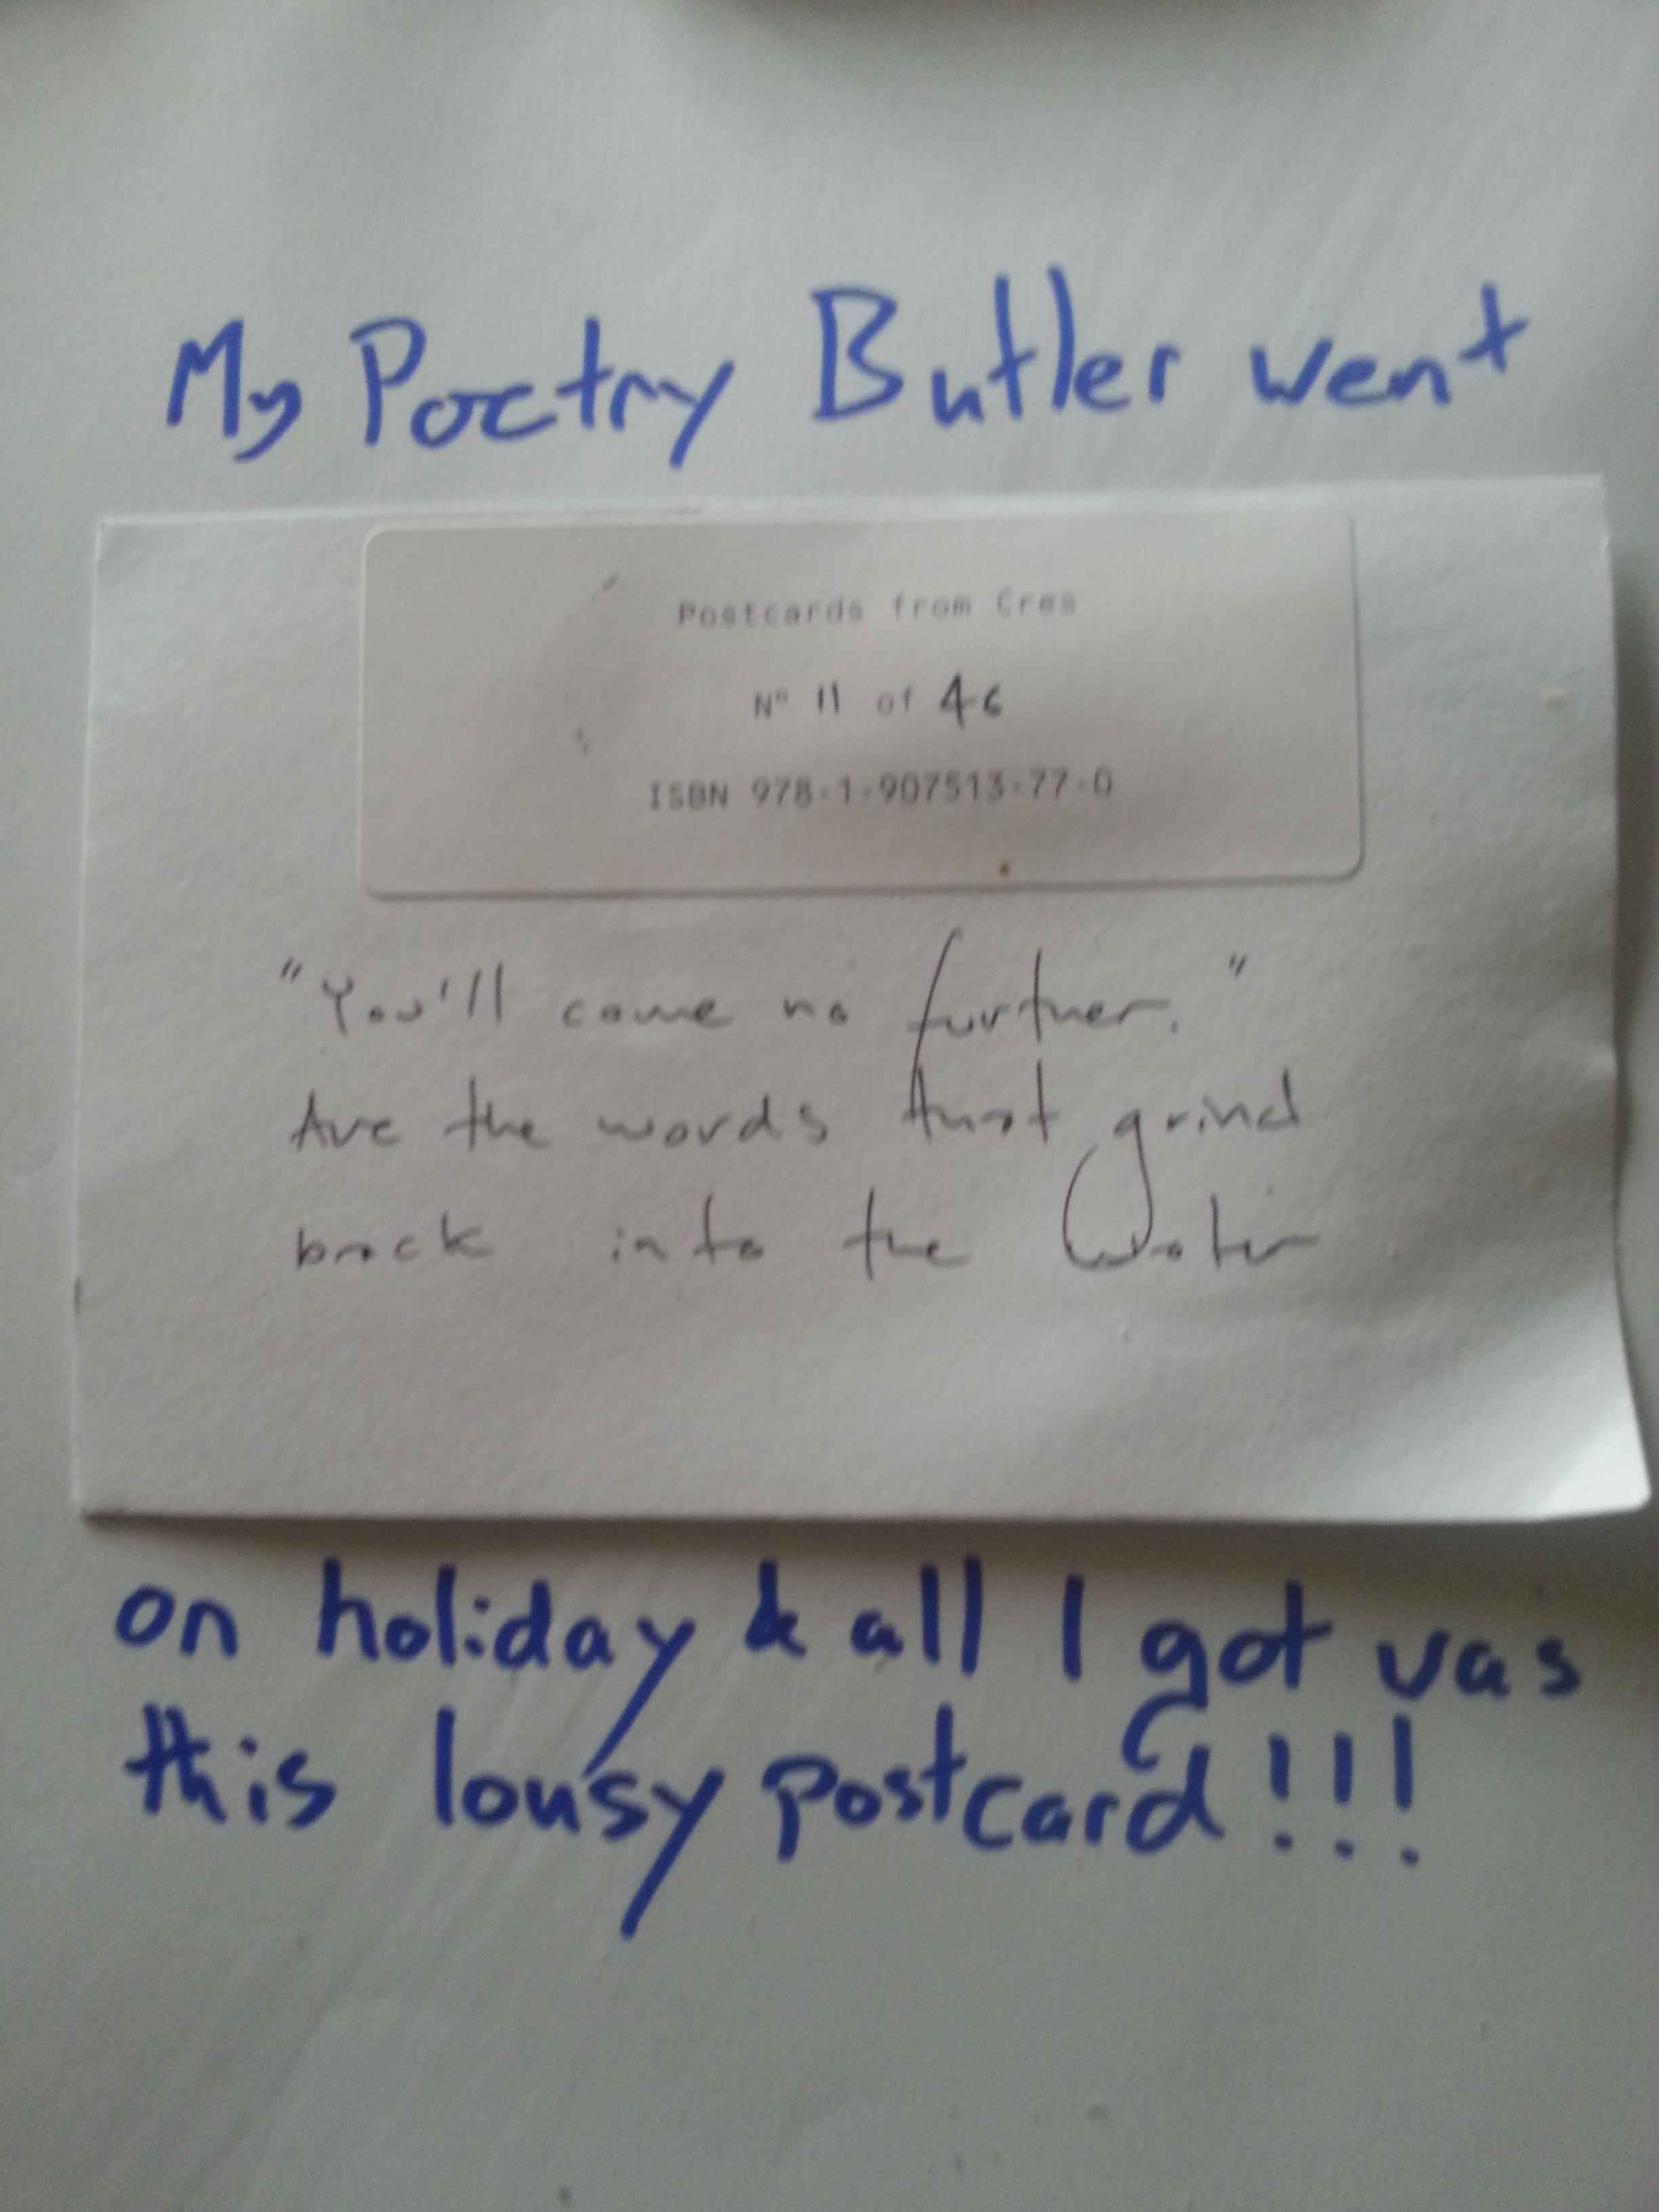 My Poetry Butler went
Postcards from Cres
Nº 11 of 46
ISBN 978-1-907513-77-0
"You'll come no further."
Are the words that grind
back into the water
on holiday & all I got was
this lousy postcard!!!